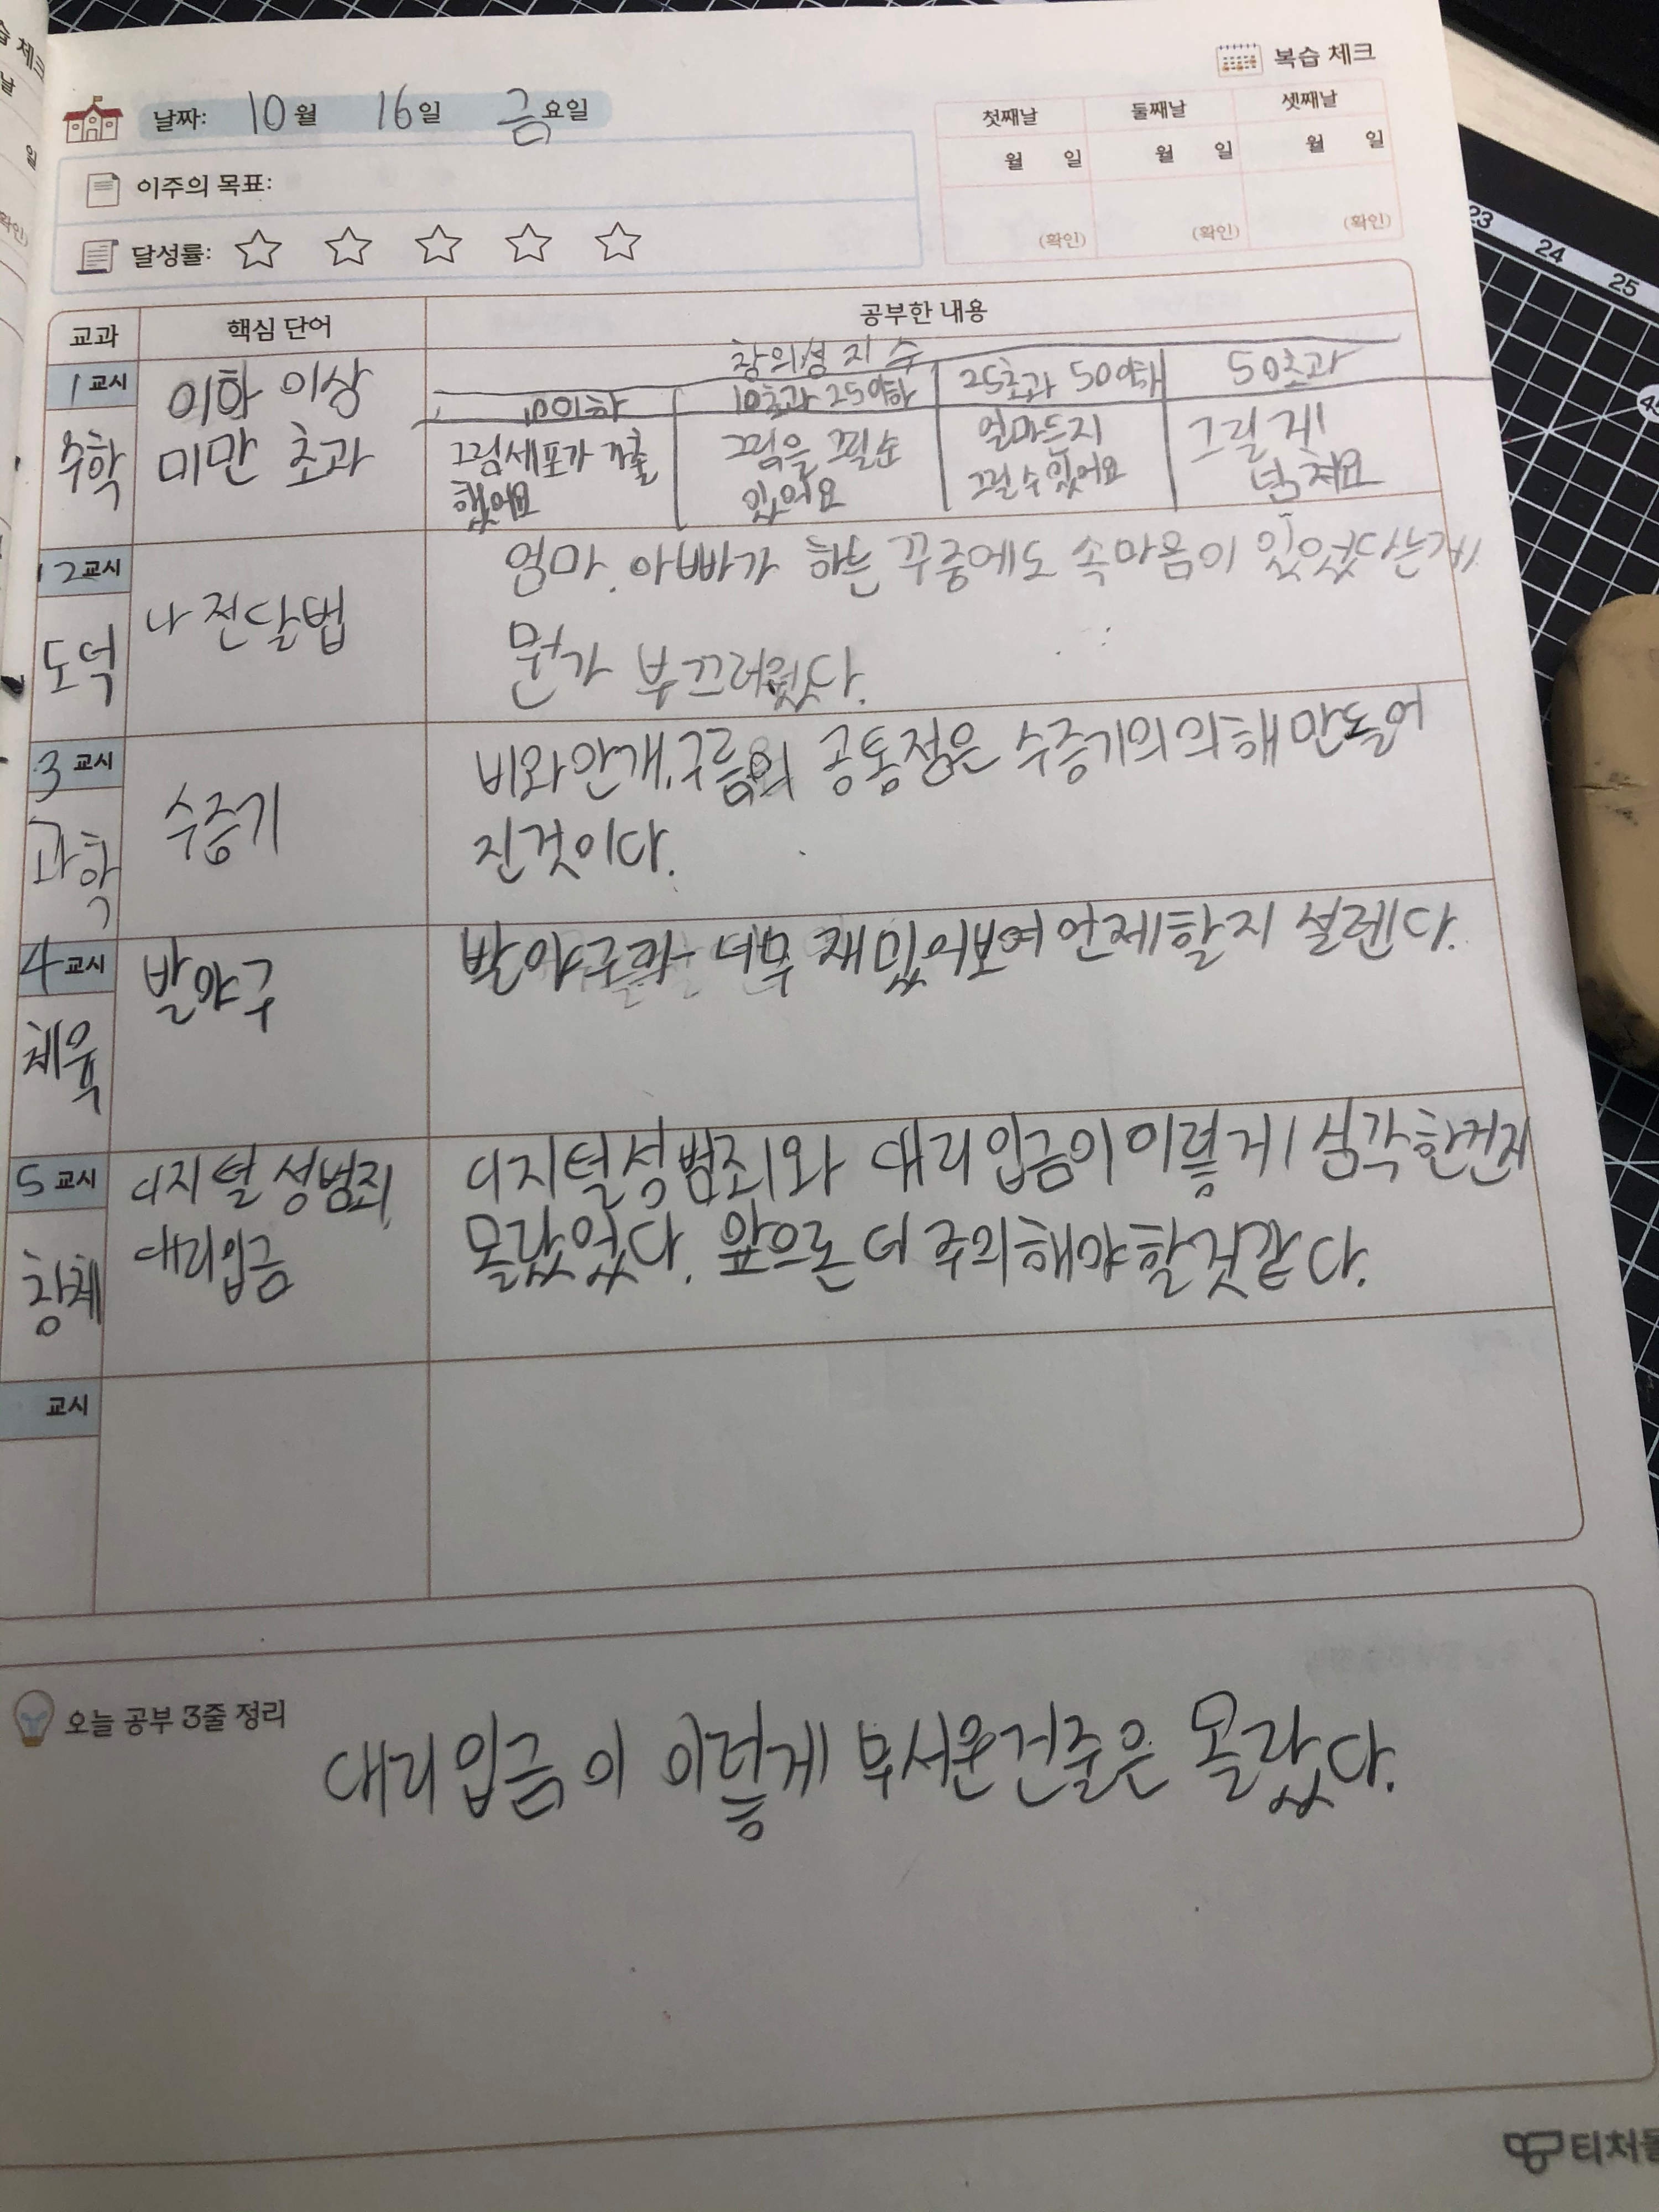 복습 체크
날짜: 10월 16일 금요일
첫째날 둘째날 셋째날
월 일 월 일 월 일
(확인) (확인) (확인)
이주의 목표:
달성률:
교과 핵심 단어 공부한 내용
1교시
수학
이하 이상
미만 초과
창의성 지수
10이하 10초과 25이하 25초과 50이하 50초과
그림세포가 가출
했어요
그림을 그릴순
있어요
얼마든지
그릴수있어요
그릴게
넘쳐요
2교시
도덕
나 전달법
엄마, 아빠가 하는 꾸중에도 속마음이 있었다는게
뭔가 부끄러웠다.
3교시
과학
수증기
비와안개,구름의 공통점은 수증기의의해만들어
진것이다.
4교시
체육
발야구
발야구가 너무 재밌어보여 언제할지 설렌다.
5교시
창체
디지털 성범죄,
대리입금
디지털성범죄와 대리입금이이렇게 심각한건지
몰랐었다. 앞으론 더 주의해야할것같다.
교시
오늘 공부 3줄 정리
대리입금이 이렇게 무서운건줄은 몰랐다.
티처몰
23
24
25